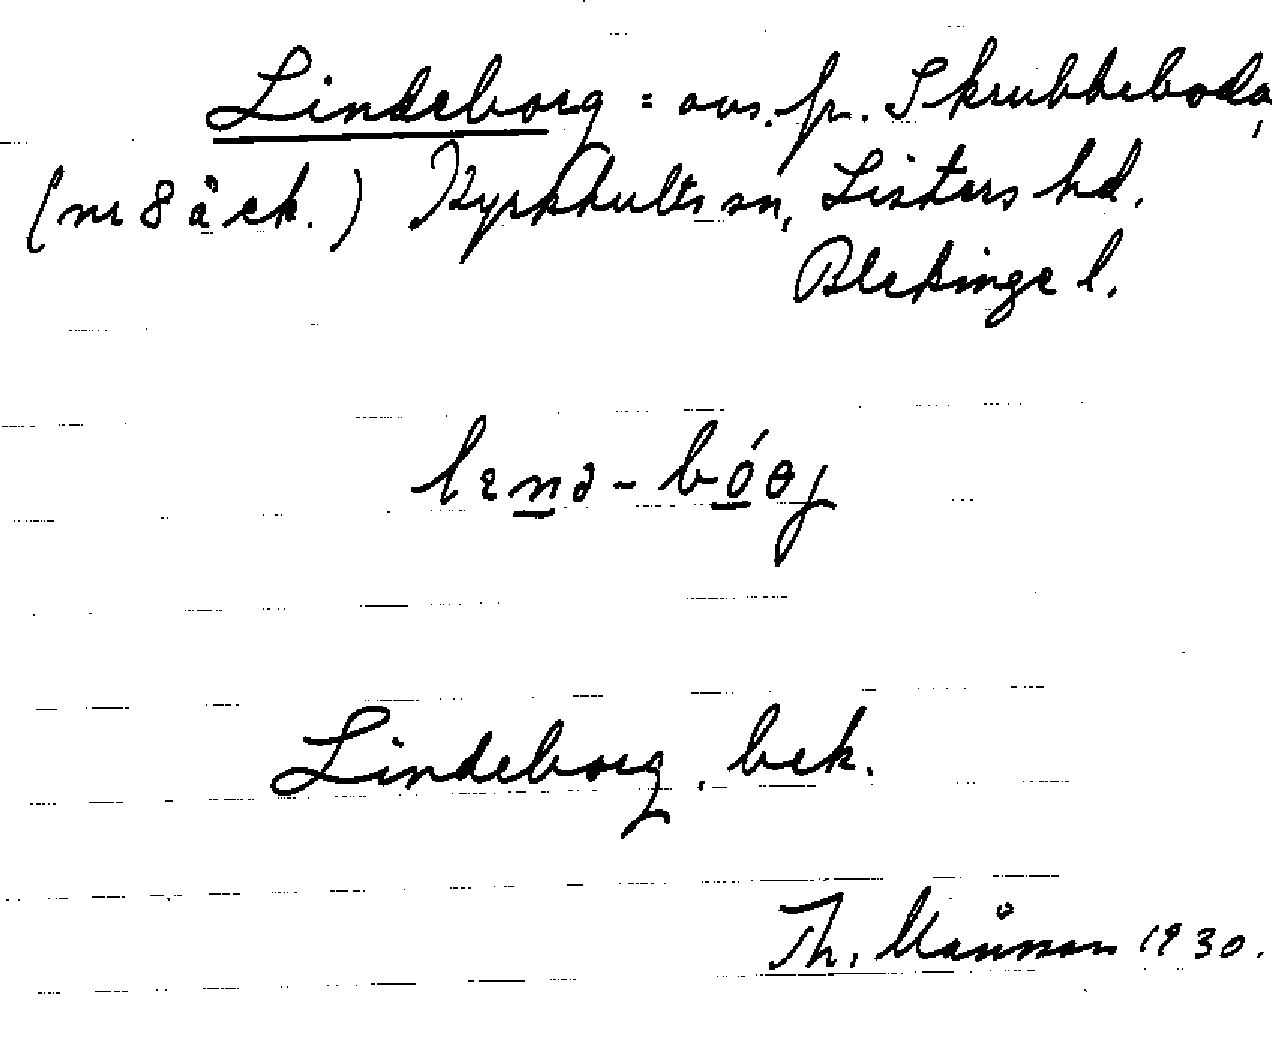 Lindeborg = avs. fr. Skrubbeboda,
(nr 8 å ek.) Kyrkhults sn, Listers hd.
Blekinge l.
Lindeborg. bek.
Th. Månsson 1930.